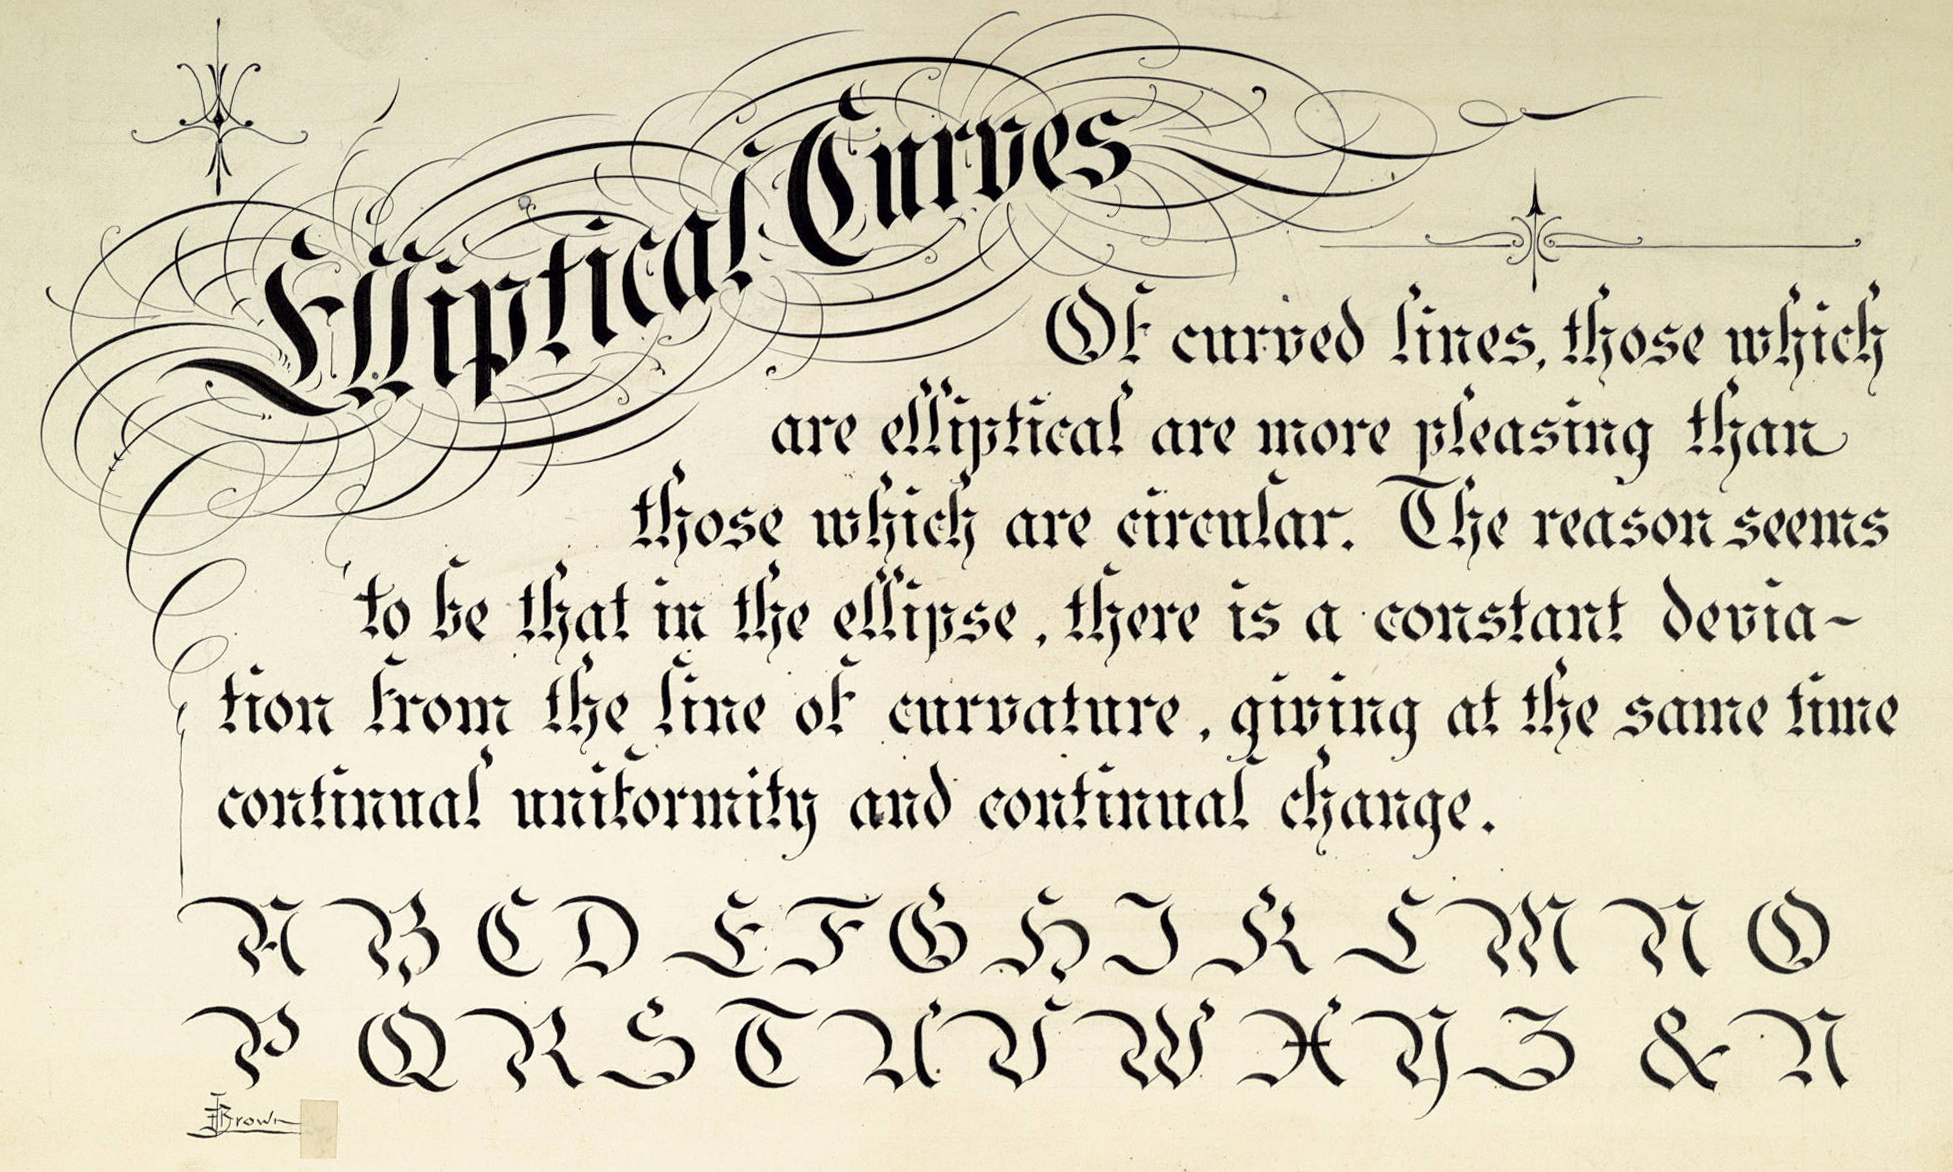 Elliptical Curves
Of curved lines, those which
are elliptical are more pleasing than
those which are circular. The reason seems
to be that in the ellipse, there is a constant devia-
tion from the line of curvature, giving at the same time
continual uniformity and continual change.
A B C D E F G H I K L M N O
P Q R S T U V W X Y Z & N
Brown